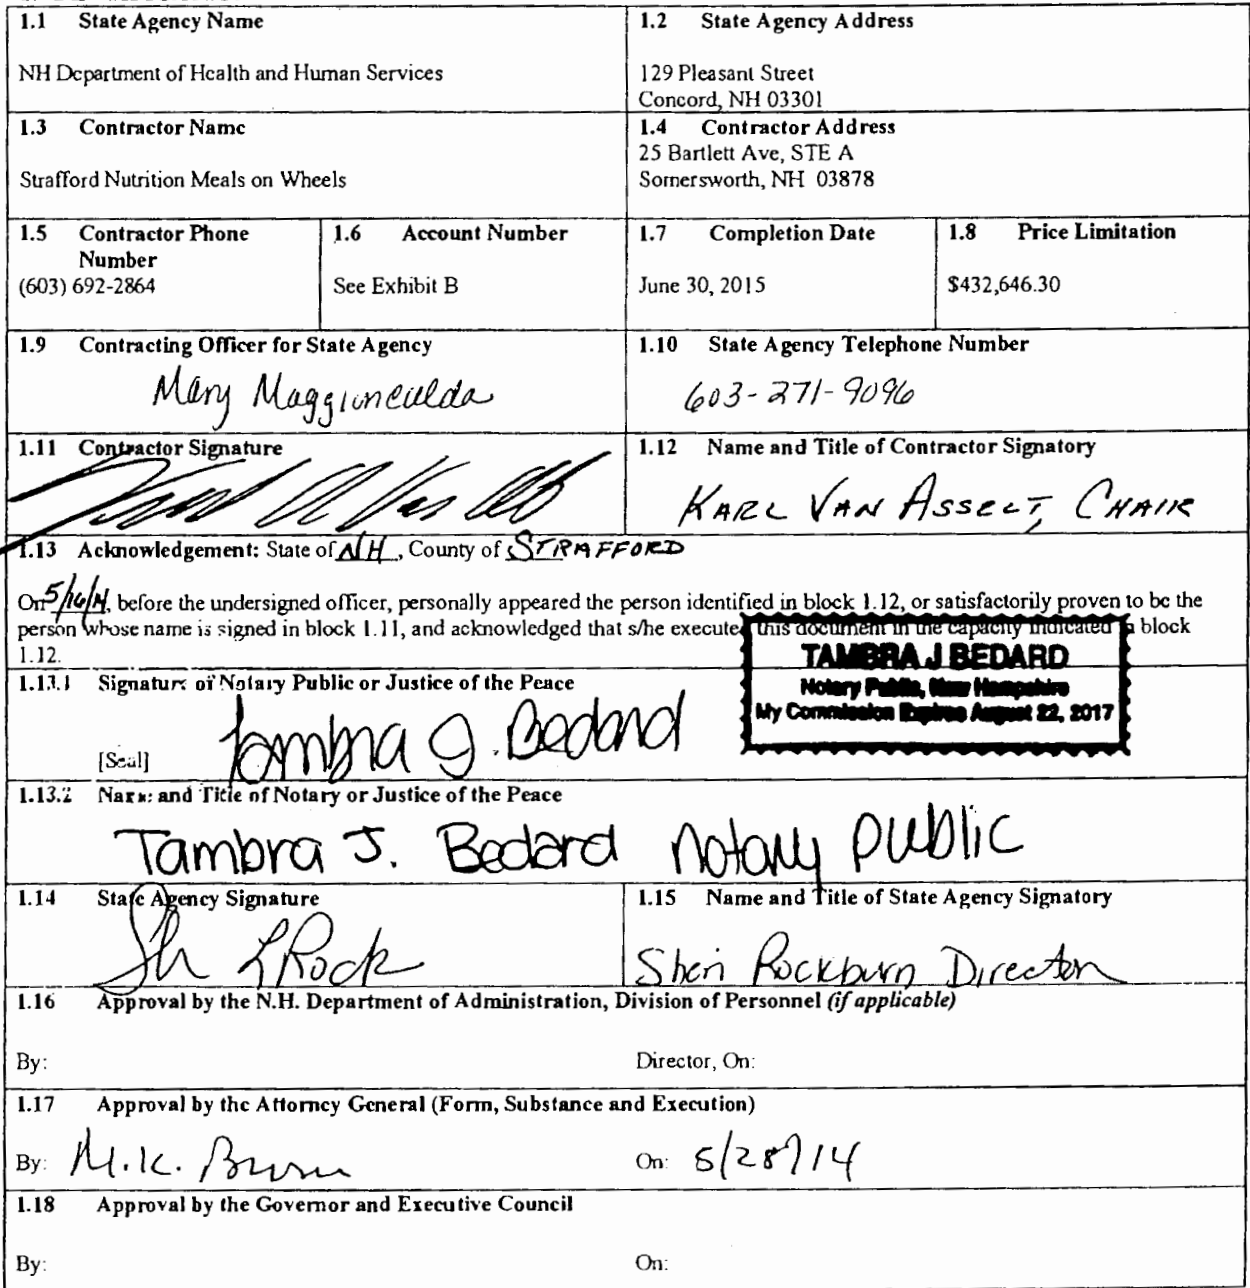 1.1 State Agency Name
NH Department of Health and Human Services
1.2 State Agency Address
129 Pleasant Street
Concord, NH 03301
1.3 Contractor Name
Strafford Nutrition Meals on Wheels
1.4 Contractor Address
25 Bartlett Ave, STE A
Somersworth, NH 03878
1.5 Contractor Phone
Number
(603) 692-2864
1.6 Account Number
See Exhibit B
1.7 Completion Date
June 30, 2015
1.8 Price Limitation
$432,646.30
1.9 Contracting Officer for State Agency
Mary Maggioncalda
1.10 State Agency Telephone Number
603-271-9096
1.11 Contractor Signature
1.12 Name and Title of Contractor Signatory
KARL VAN ASSELT, CHAIR
1.13 Acknowledgement: State of NH, County of STRAFFORD
On 5/16/14, before the undersigned officer, personally appeared the person identified in block 1.12, or satisfactorily proven to be the
person whose name is signed in block 1.11, and acknowledged that s/he executed this document in the capacity indicated in block
1.12.
TAMBRA J BEDARD
Notary Public, New Hampshire
My Commission Expires August 22, 2017
1.13.1 Signature of Notary Public or Justice of the Peace
Tambra J. Bedard
[Seal]
1.13.2 Name and Title of Notary or Justice of the Peace
Tambra J. Bedard Notary Public
1.14 State Agency Signature
1.15 Name and Title of State Agency Signatory
Sheri Rockburn Director
1.16 Approval by the N.H. Department of Administration, Division of Personnel (if applicable)
By:
Director, On:
1.17 Approval by the Attorney General (Form, Substance and Execution)
By: M.K. Brown
On: 5/28/14
1.18 Approval by the Governor and Executive Council
By:
On: